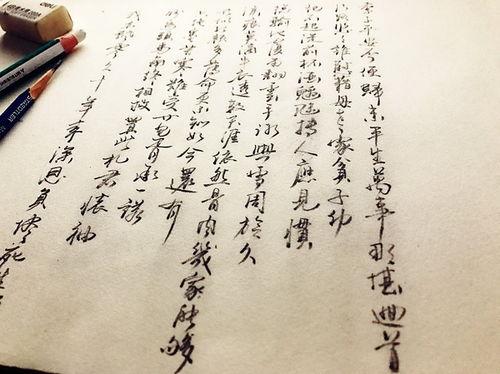 季子平安否便歸來平生萬事那堪迴首
行路悠悠誰慰藉母老家貧子幼
記不起從前杯酒魑魅搏人應見慣
總輸他覆雨翻雲手冰與雪周旋久
淚痕莫滴牛衣透數天涯依然骨肉幾家能夠
比似紅顏多命薄更不如今還有
只絕塞苦寒難受廿載包胥承一諾
盼烏頭馬角終相救置此札君懷袖
我亦飄零久十年來深恩負盡死生